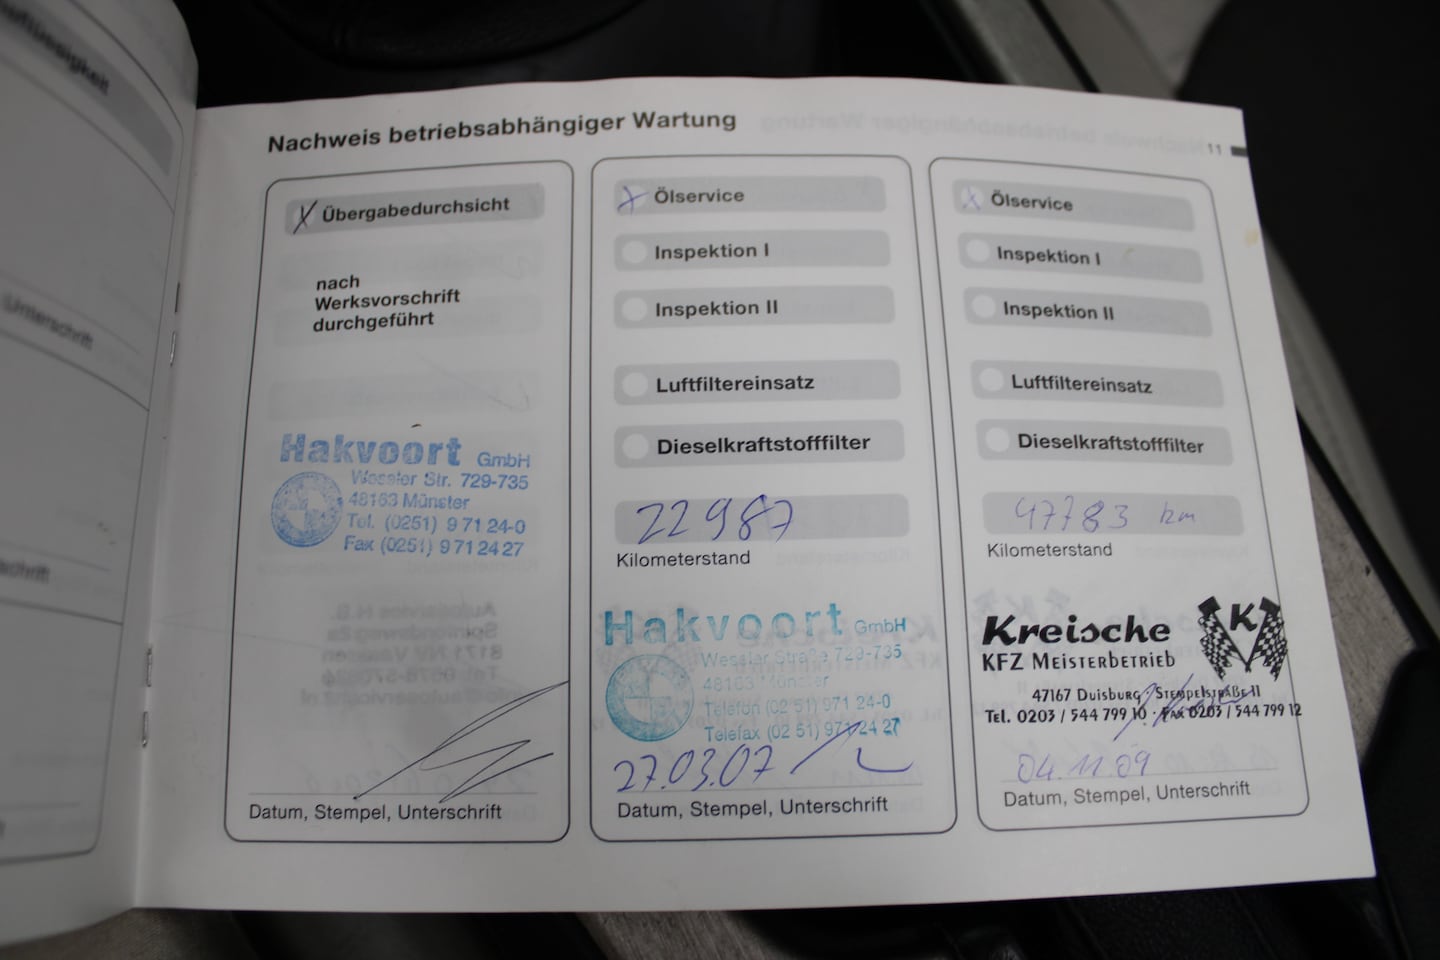 Nachweis betriebsabhängiger Wartung
11
Übergabedurchsicht
nach
Werksvorschrift
durchgeführt
Hakvoort GmbH
Weseler Str. 729-735
48163 Münster
Tel. (0251) 9 71 24-0
Fax (0251) 9 71 24 27
Datum, Stempel, Unterschrift
Ölservice
Inspektion I
Inspektion II
Luftfiltereinsatz
Dieselkraftstofffilter
22987
Kilometerstand
Hakvoort GmbH
Weseler Straße 729-735
48163 Münster
Telefon (02 51) 971 24-0
Telefax (02 51) 971 24 27
27.03.07
Datum, Stempel, Unterschrift
Ölservice
Inspektion I
Inspektion II
Luftfiltereinsatz
Dieselkraftstofffilter
47783 km
Kilometerstand
Kreische
K
KFZ Meisterbetrieb
47167 Duisburg · Stempelstraße 11
Tel. 0203 / 544 799 10 · Fax 0203 / 544 799 12
04.11.09
Datum, Stempel, Unterschrift